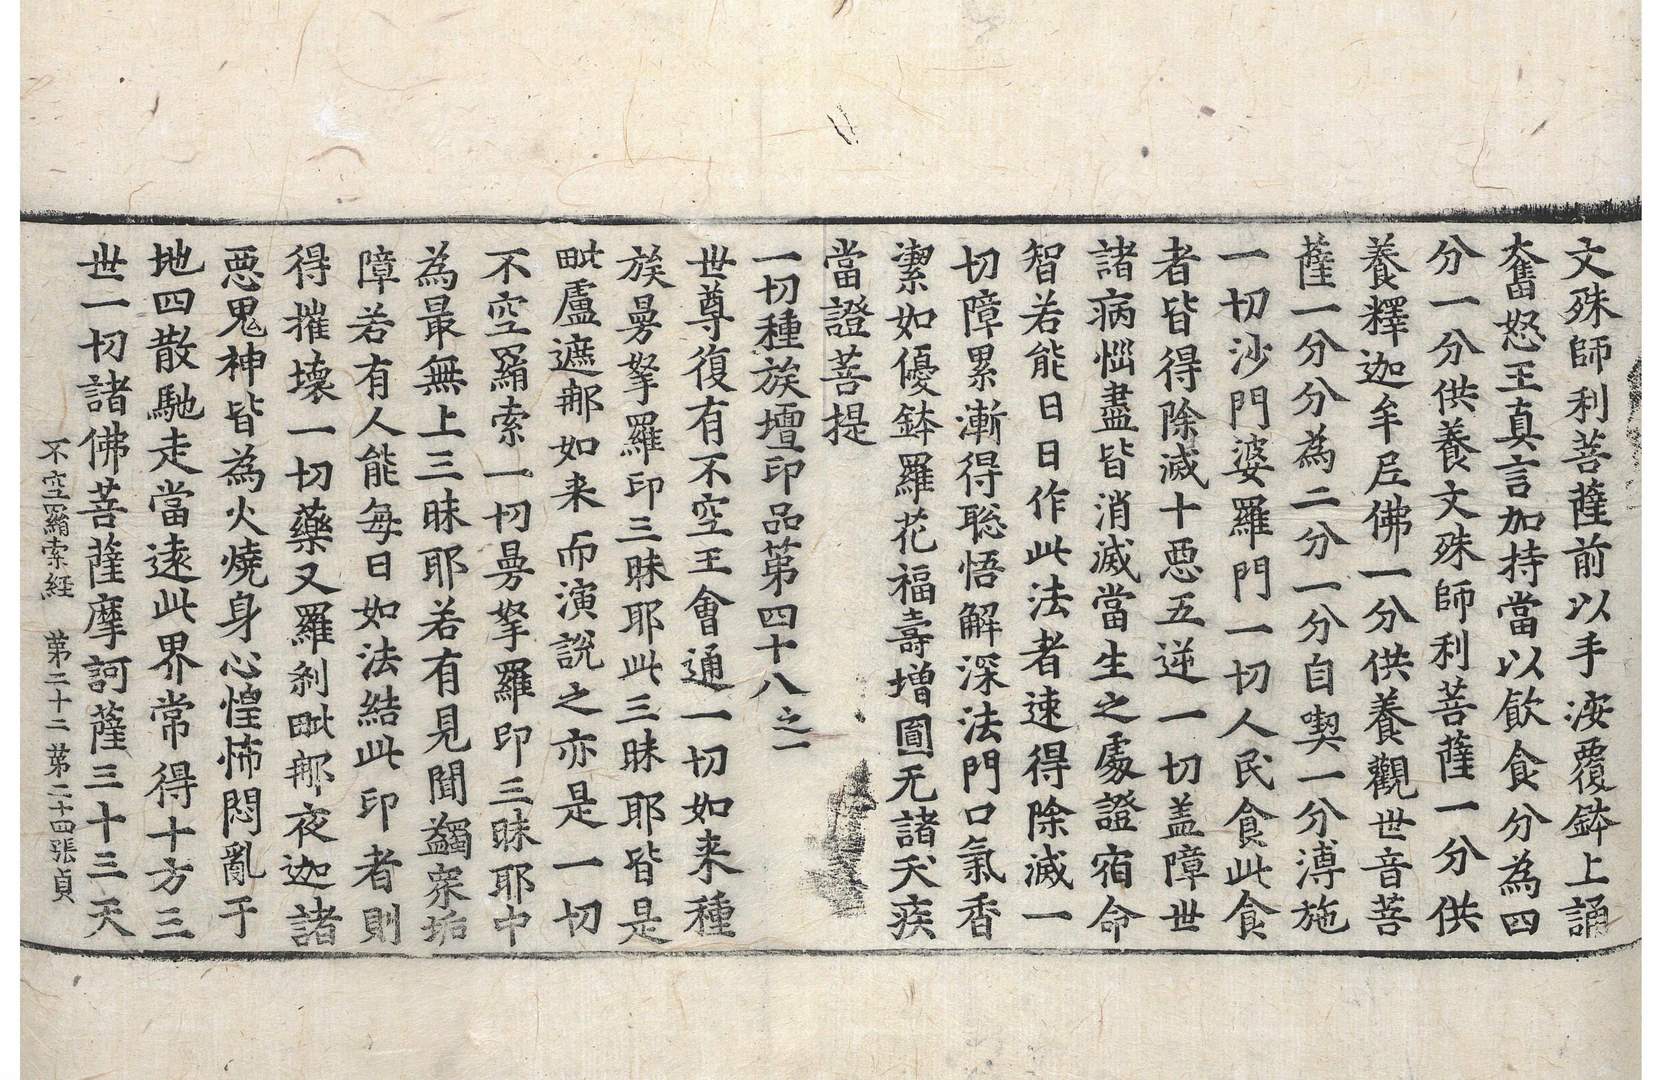 文殊師利菩薩前以手按覆鉢上誦
奮怒王真言加持當以飲食分為四
分一分供養文殊師利菩薩一分供
養釋迦牟尼佛一分供養觀世音菩
薩一分分為二分一分自喫一分溥施
一切沙門婆羅門一切人民食此食
者皆得除滅十惡五逆一切盖障世
諸病惱盡皆消滅當生之處證宿命
智若能日日作此法者速得除滅一
切障累漸得聡悟解深法門口氣香
潔如優鉢羅花福壽增圓无諸夭疾
當證菩提
一切種族壇印品第四十八之一
世尊復有不空王會通一切如来種
族曼拏羅印三昧耶此三昧耶皆是
毗盧遮那如来而演說之亦是一切
不空羂索一切曼拏羅印三昧耶中
為最無上三昧耶若有見聞蠲衆垢
障若有人能每日如法結此印者則
得摧壞一切藥叉羅剎毗那夜迦諸
惡鬼神皆為火燒身心惶怖悶亂于
地四散馳走當遠此界常得十方三
世一切諸佛菩薩摩訶薩三十三天
不空羂索経 第二十二 第二十四張 貞